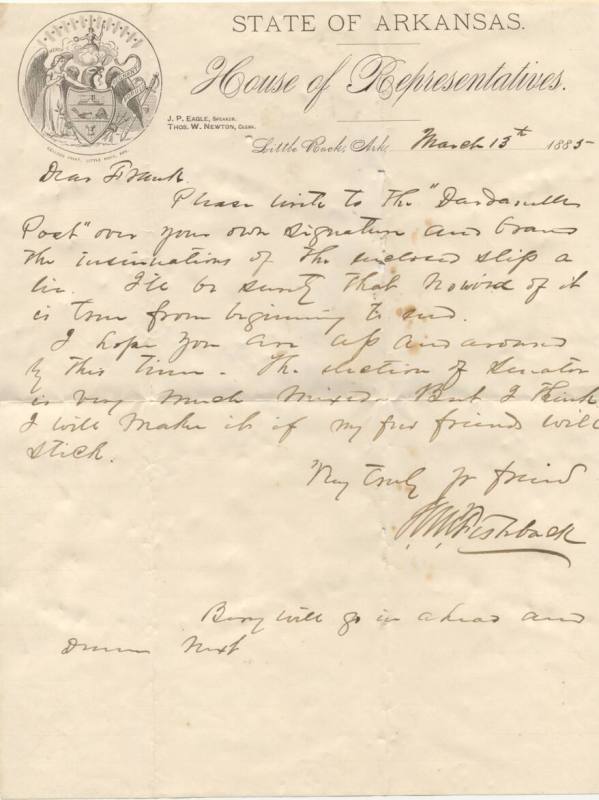 STATE OF ARKANSAS.
House of Representatives.
J. P. EAGLE, SPEAKER.
THOS. W. NEWTON, CLERK.
Little Rock, Ark. March 13th 1885
Dear Frank
Please write to the "Dardanelle
Post" over your own signature and brand
the insinuations of the enclosed slip a
lie. I'll be surety that no word of it
is true from beginning to end.
I hope you are up and around
by this time. The election of Senator
is very much mixed. But I think
I will make it if my few friends will
stick.
Very truly yr friend
W M Fishback
Berry will go in ahead and
Dunn next